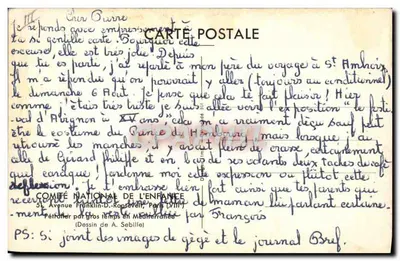 Cher Pierre
Je réponds avec empressement à
ta si gentille carte. Pourquoi cette
CARTE POSTALE
excuse elle est très jolie. Depuis
que tu es parti, j'ai reparlé à mon père du voyage à St Amboix
Il m'a répondu qu'on pourrait y aller (toujours au conditionnel)
le dimanche 6 Août. Je pense que cela te fait plaisir! Hier
comme j'étais très triste je suis allée voir l'exposition "le festi-
val d'Avignon à XV ans", cela m'a vraiment déçu sauf peut
être le costume du Prince de Hombourg mais lorsque j'ai
retroussé les manches il y avait plein de crasse, certainement
celle de Gérard Philipe et en bas de ses volants deux taches de café
que cardigue! Pardonne moi cette expression ou plutôt cette
réflexion, je t'embrasse bien fort ainsi que tes parents qui
COMITÉ NATIONAL DE L'ENFANCE
51, Avenue Franklin-D.-Roosevelt, Paris (VIIIe)
recevront bientôt une lettre de maman lui parlant certaine-
ment de la
Pétrolier par gros temps en Méditerranée
par François
(Dessin de A. Sebille)
PS: Si joint des images de gégé et le journal Bref.